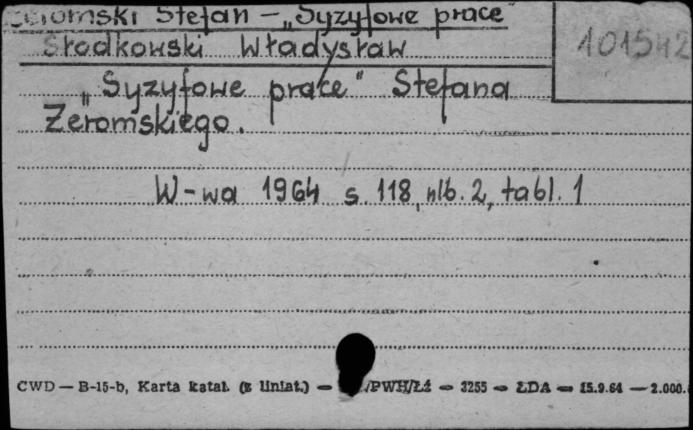 Żeromski Stefan – „Syzyfowe prace"
Słodkowski Władysław
101542
„Syzyfowe prace" Stefana
Żeromskiego.
W-wa 1964 s. 118, nlb. 2, tabl. 1
CWD — B-15-b, Karta katal. (z liniat.) — /PWH/Łź — 3255 — ŁDA — 15.9.64 — 2.000.